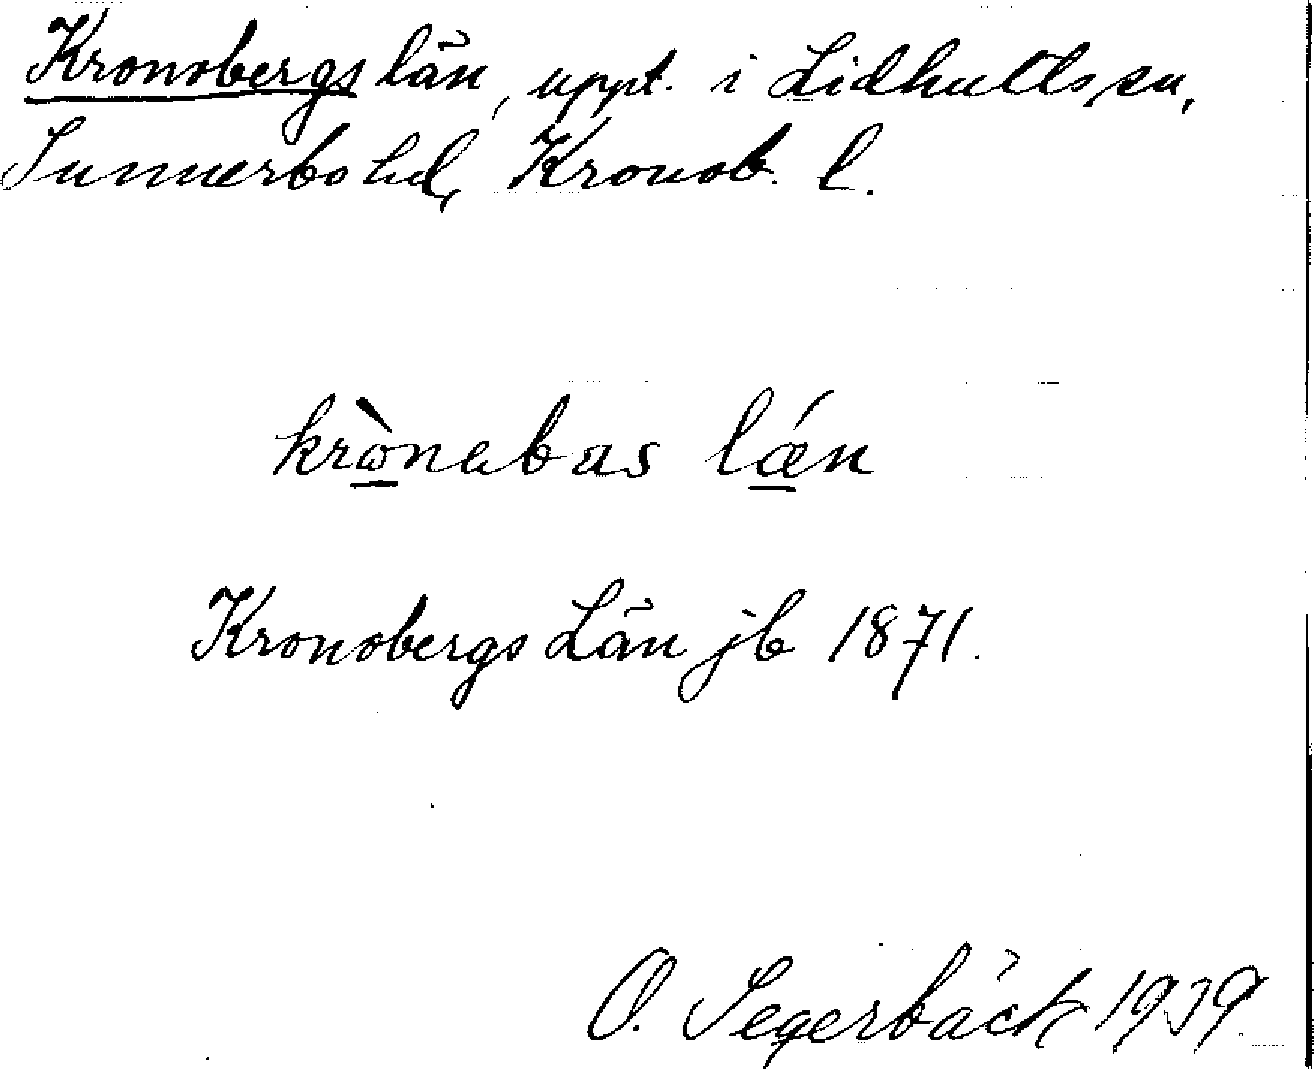 Kronobergs län, uppt. i Lidhults sn,
Sunnerbo hd, Kronob. l.
krònabas lǽn
Kronobergs Län jb 1871.
O. Segerbäck 1939.